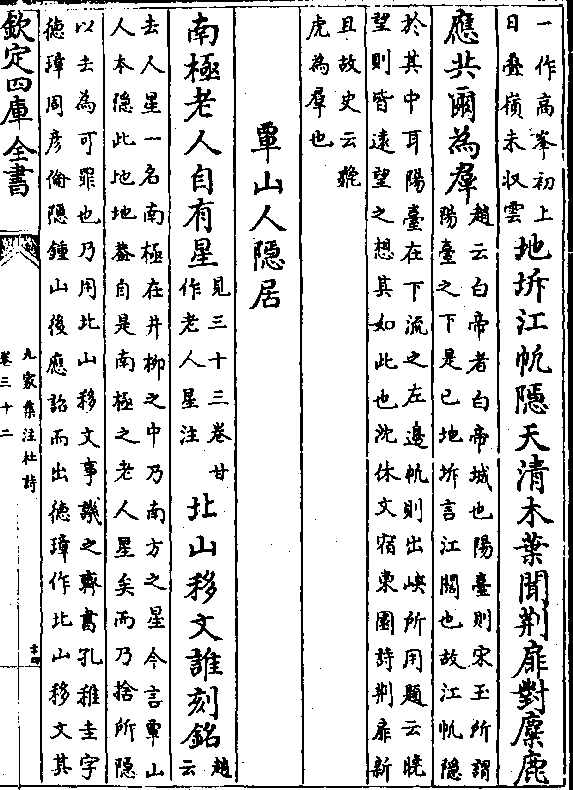 一作高峯初上
日叠嶺未収雲
地坼江帆隱天清木葉聞荆扉對麋鹿
應共爾為羣
趙云白帝者白帝城也陽臺則宋玉所謂
陽臺之下是已地坼言江闊也故江帆隠
於其中耳陽臺在下流之左邉帆則出峽所用題云曉
望則皆遠望之想其如此也沈休文宿東園詩荆扉新
且故史云
虎為羣也
覃山人隱居
南極老人自有星
見三十三卷甘
作老人星注
北山移文誰刻銘
趙
云
去人星一名南極在井柳之中乃南方之星今言覃山
人本隐此地地葢自是南極之老人星矣而乃捨所隠
以去為可罪也乃用北山移文事譏之齊書孔稚圭字
德璋周彦倫隠鍾山後應詔而出德璋作北山移文其
欽定四庫全書
九家集注杜詩
卷三十二
十四